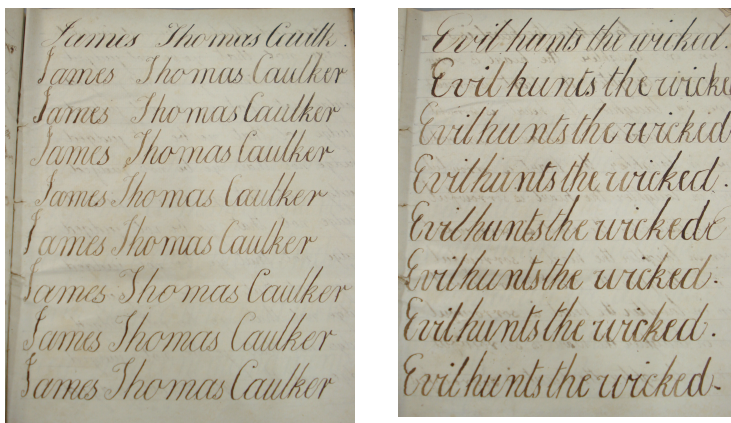 James Thomas Caulk.
James Thomas Caulker
James Thomas Caulker
James Thomas Caulker
James Thomas Caulker
James Thomas Caulker
James Thomas Caulker
James Thomas Caulker
James Thomas Caulker
Evil hunts the wicked.
Evil hunts the wicke
Evil hunts the wicked
Evil hunts the wicked.
Evil hunts the wickede
Evil hunts the wicked.
Evil hunts the wicked.
Evil hunts the wicked.